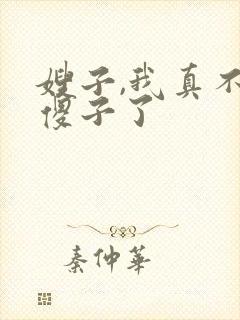 嫂子,我真不
傻子了
秦仲華